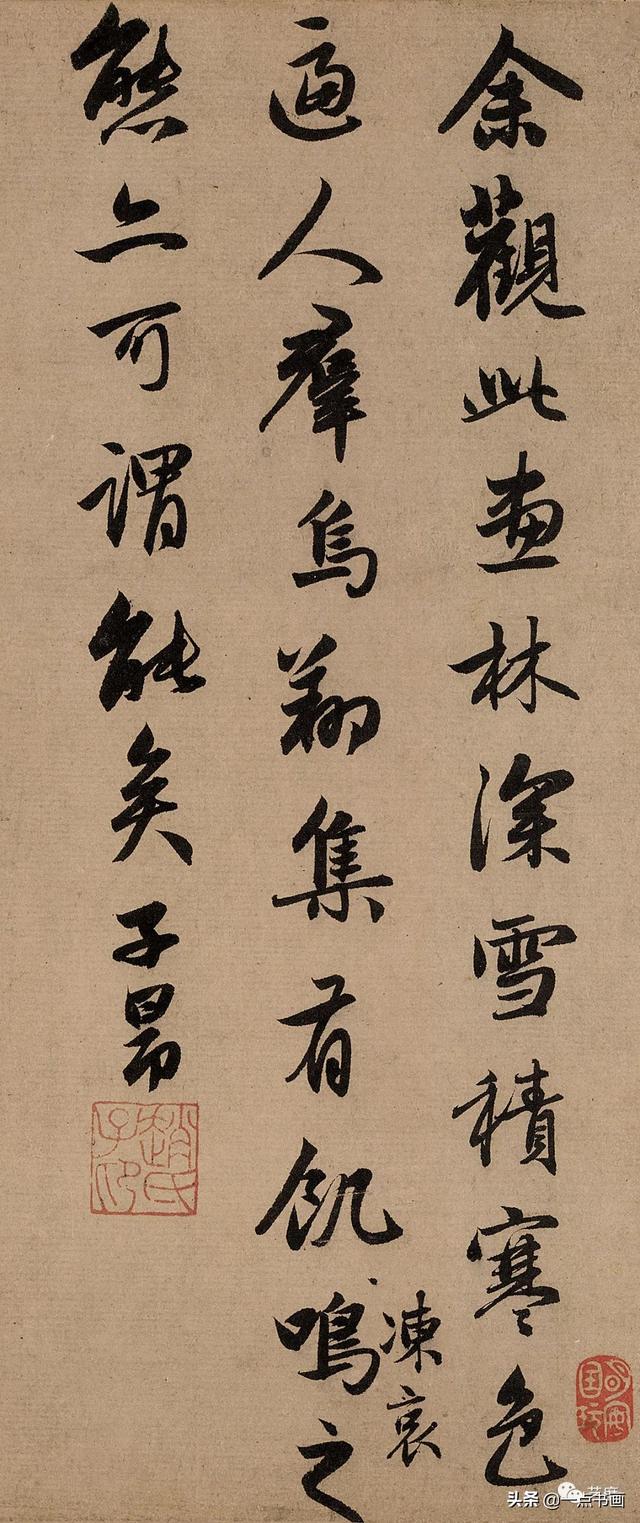 余觀此畫林深雪積寒色
逼人羣烏翔集有飢鳴之
凍哀
態亦可謂能矣子昂
趙氏子昂
头条 @一点书画